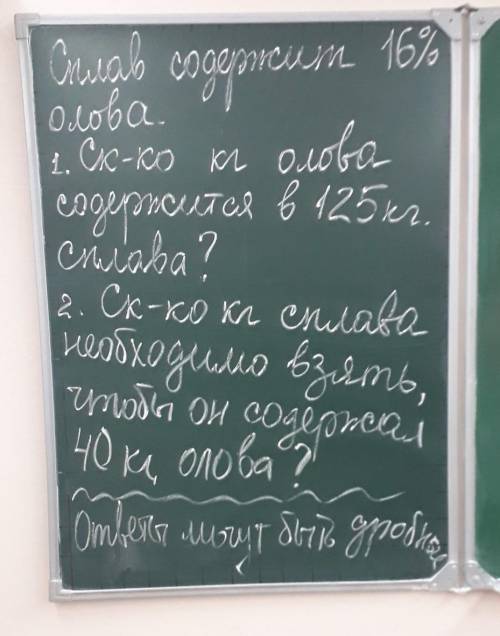 Сплав содержит 16%
олова.
1. Ск-ко кг олова
содержится в 125кг.
сплава?
2. Ск-ко кг сплава
необходимо взять,
чтобы он содержал
40 кг олова?
Ответы могут быть дробные